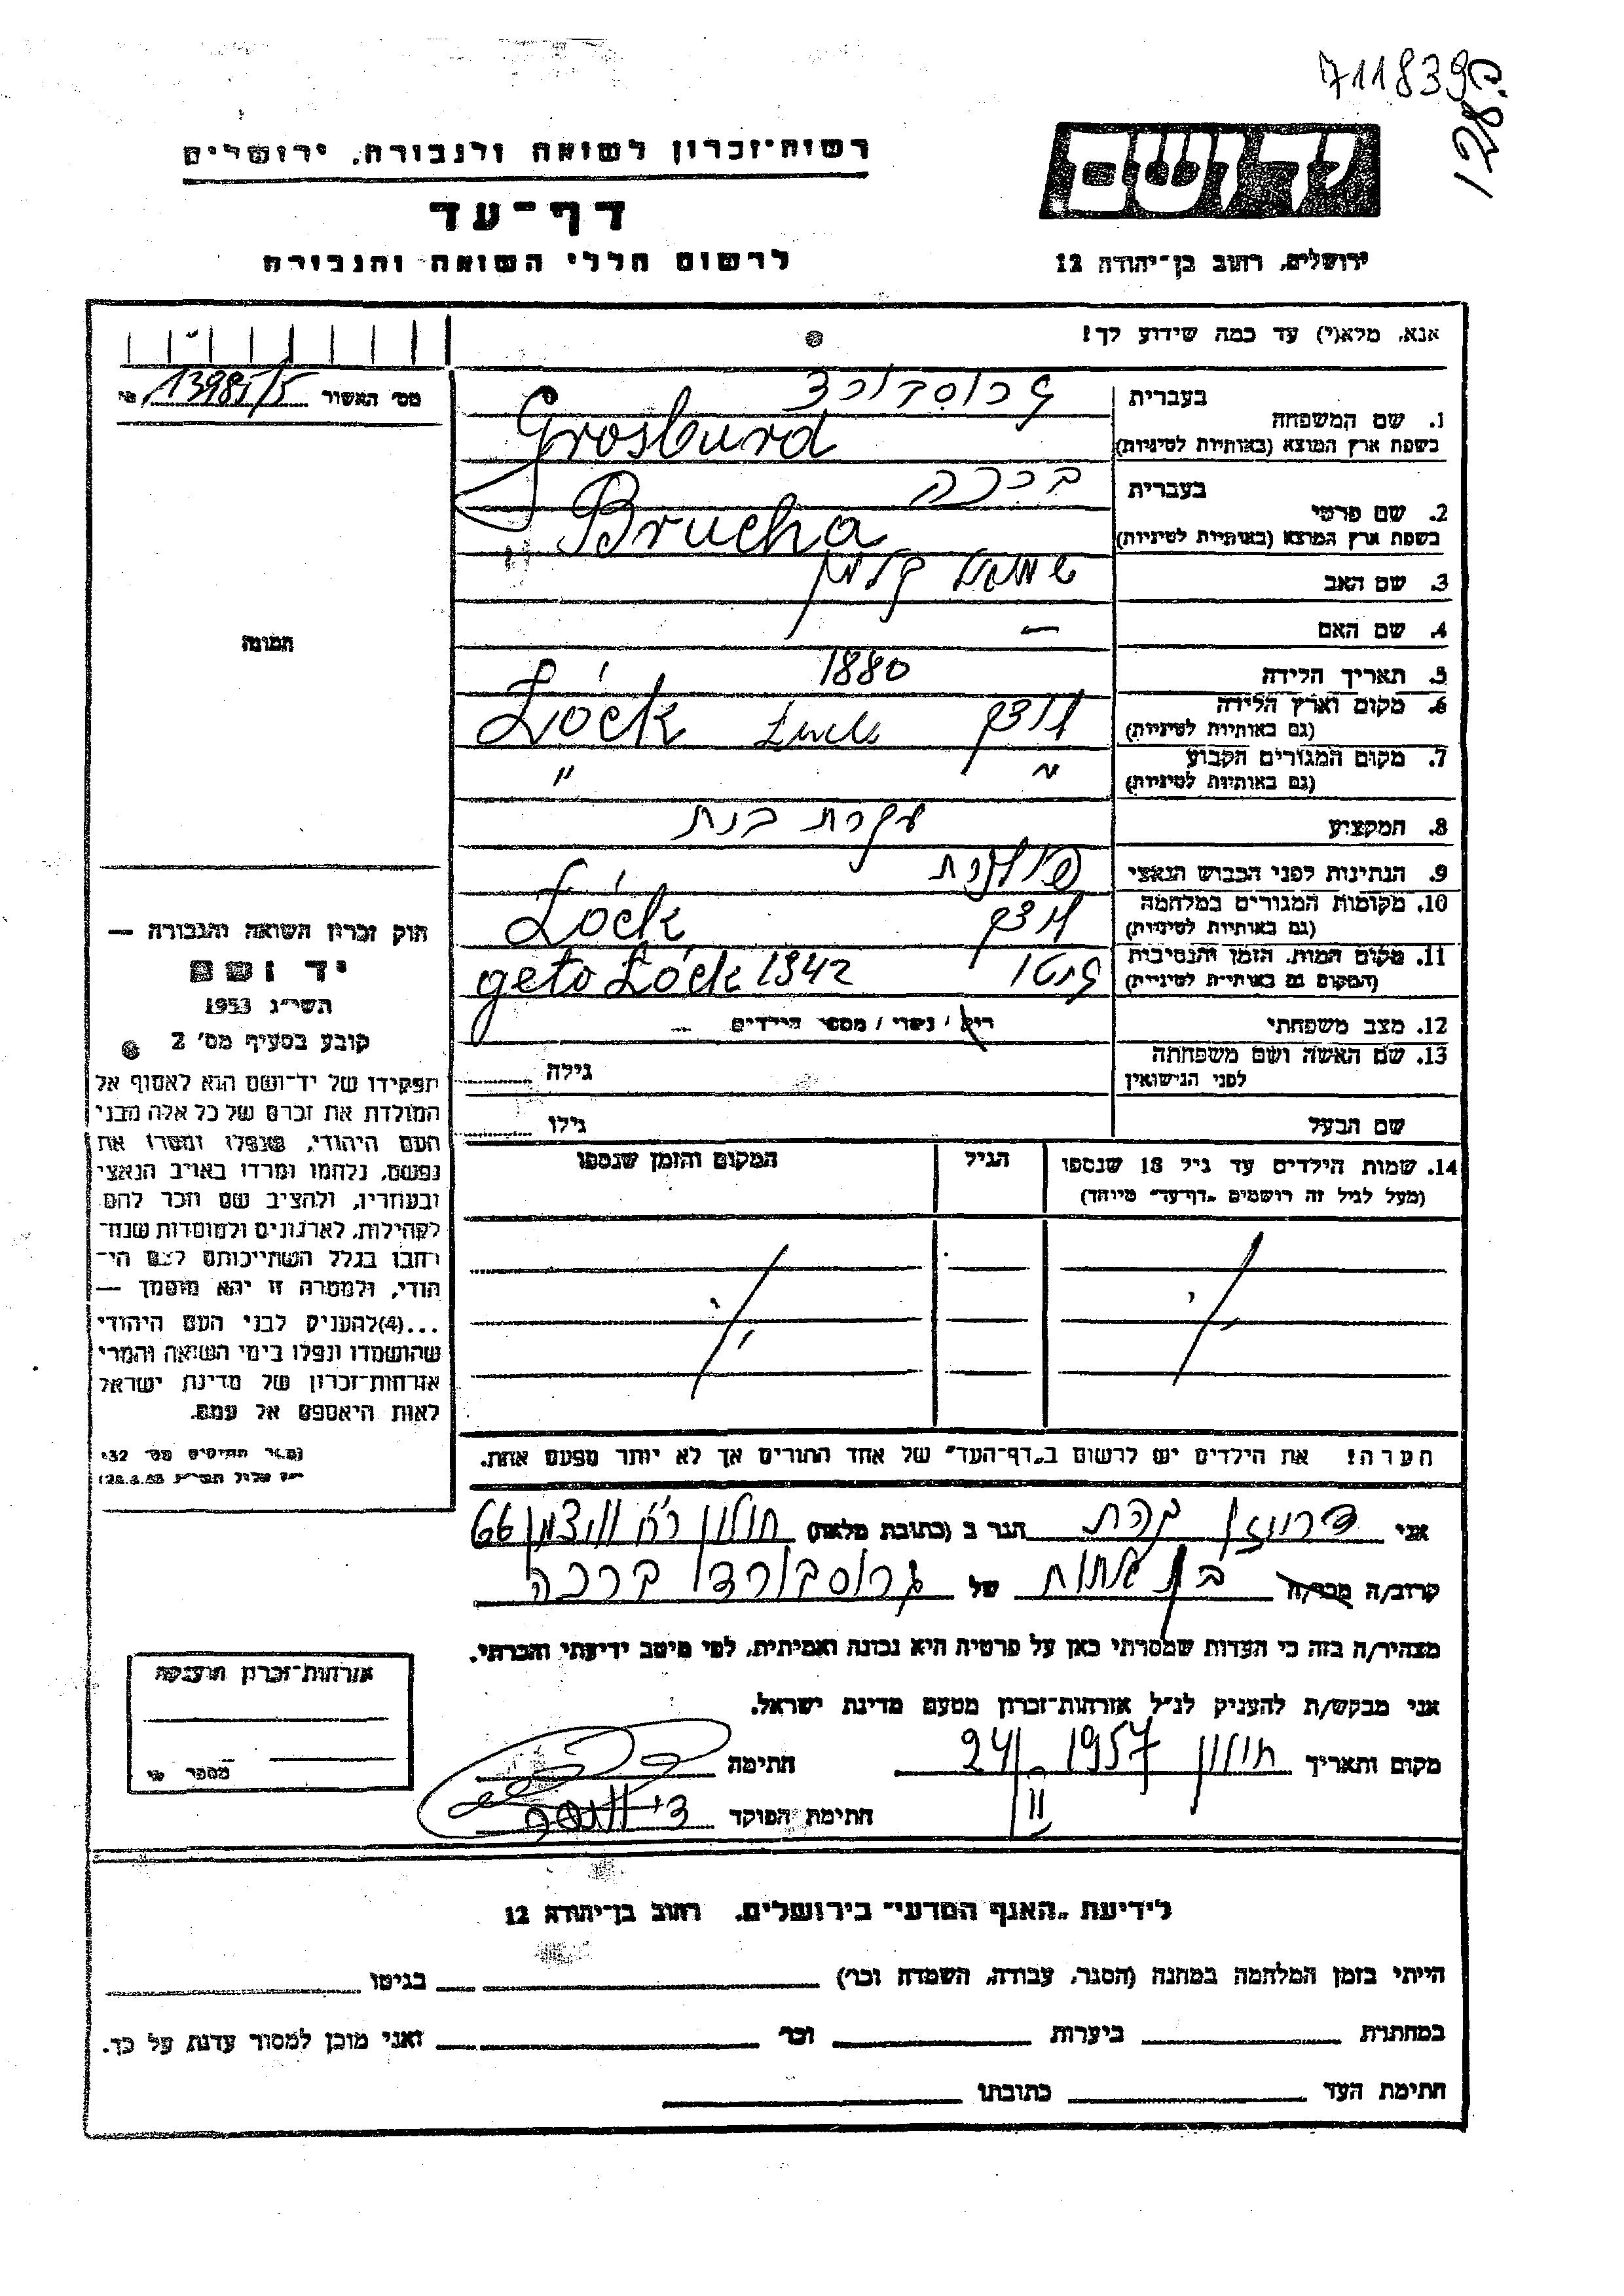 7118390
128ב
רשות-זכרון לשואה ולגבורה, ירושלים
דף-עד
לרשום חללי השואה והגבורה
יד ושם
ירושלים, רחוב בן-יהודה 12
אנא, מלא(י) עד כמה שידוע לך!
מס׳ האשור 13985/5
1. שם המשפחה
בעברית גרוסבורד
בשפת ארץ המוצא (באותיות לטיניות) Grosburd
2. שם פרטי
בעברית ברכה
בשפת ארץ המוצא (באותיות לטיניות) Brucha
3. שם האב שמואל
4. שם האם —
5. תאריך הלידה 1880
6. מקום וארץ הלידה לודז
(גם באותיות לטיניות) Łóck
7. מקום המגורים הקבוע "
(גם באותיות לטיניות) "
8. המקצוע עקרת בית
9. הנתינות לפני הכבוש הנאצי פולנית
10. מקומות המגורים במלחמה
(גם באותיות לטיניות) Łóck
11. מקום המות, הזמן והנסיבות גיטו
(המקום גם באותיות לטיניות) geto Łóck 1942
12. מצב משפחתי רוק / נשוי / מספר הילדים
13. שם האשה ושם משפחתה
לפני הנישואין
גילה
שם הבעל
גילו
14. שמות הילדים עד גיל 18 שנספו
(מעל לגיל זה רושמים „דף-עד" מיוחד)
הגיל
המקום והזמן שנספו
הערה! את הילדים יש לרשום ב„דף-העד" של אחד ההורים אך לא יותר מפעם אחת.
התמונה
חוק זכרון השואה והגבורה —
יד ושם
תשי״ג 1953
קובע בסעיף מס׳ 2
תפקידו של יד-ושם הוא לאסוף אל
המולדת את זכרם של כל אלה מבני
העם היהודי, שנפלו ומסרו את
נפשם, נלחמו ומרדו באויב הנאצי
ובעוזריו, ולהציב שם וזכר להם
לקהילות, לארגונים ולמוסדות שנח-
רבו בגלל השתייכותם לעם הי-
הודי, ולמטרה זו יהא מוסמך —
...(4)להעניק לבני העם היהודי
שהושמדו ונפלו בימי השואה והמרי
אזרחות-זכרון של מדינת ישראל
לאות היאספם אל עמם.
אני הגר ב (כתובת מלאה) חולון רח׳ וויצמן 66
קרוב/ה מכר/ה של גרוסבורד ברכה
מצהיר/ה בזה כי העדות שמסרתי כאן על פרטיה היא נכונה ואמיתית, לפי מיטב ידיעתי והכרתי.
אני מבקש/ת להעניק לנ״ל אזרחות-זכרון מטעם מדינת ישראל.
מקום ותאריך חולון 24/II 1957 חתימה
חתימת הפוקד
אזרחות-זכרון הוענקה
מספר
לידיעת „האגף המדעי" בירושלים, רחוב בן-יהודה 12
הייתי בזמן המלחמה במחנה (הסגר, עבודה, השמדה וכו׳) בגיטו
במחתרת ביערות וכו׳ ואני מוכן למסור עדות על כך.
חתימת העד כתובתו